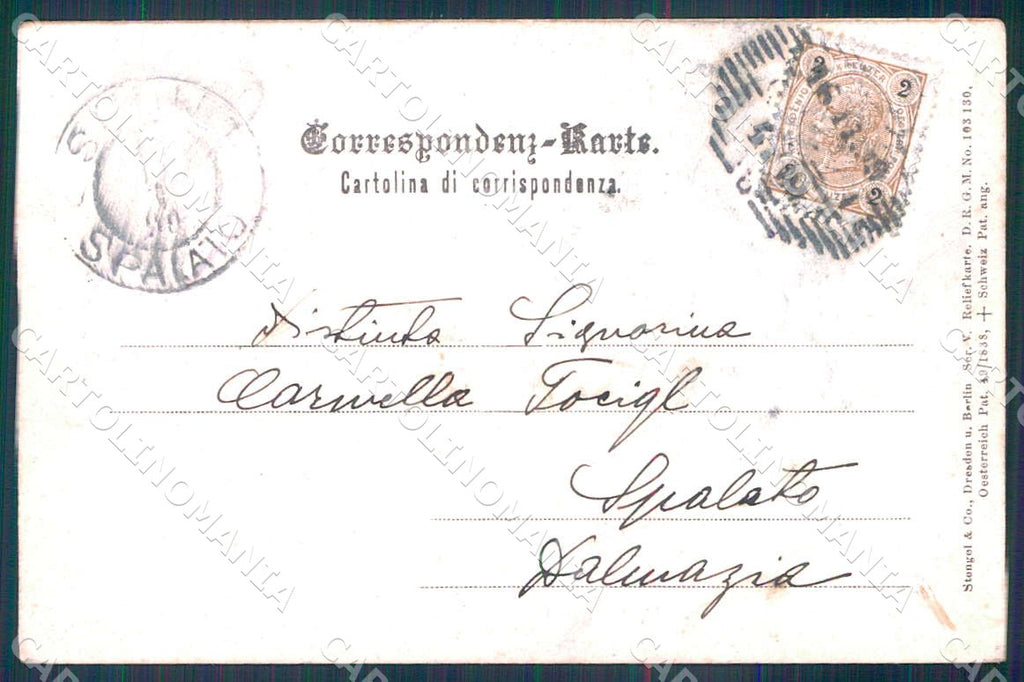 Correspondenz-Karte.
Cartolina di corrispondenza.
2
2
2
SPALATO
Distinta Signorina
Carmella Tocigl
Spalato
Dalmazia
Stengel & Co., Dresden u. Berlin Ser. V. Reliefkarte. D. R. G. M. No. 103 130,
Oesterreich Pat. 49/1838, + Schweiz Pat. ang.
CARTOLINOMANIA